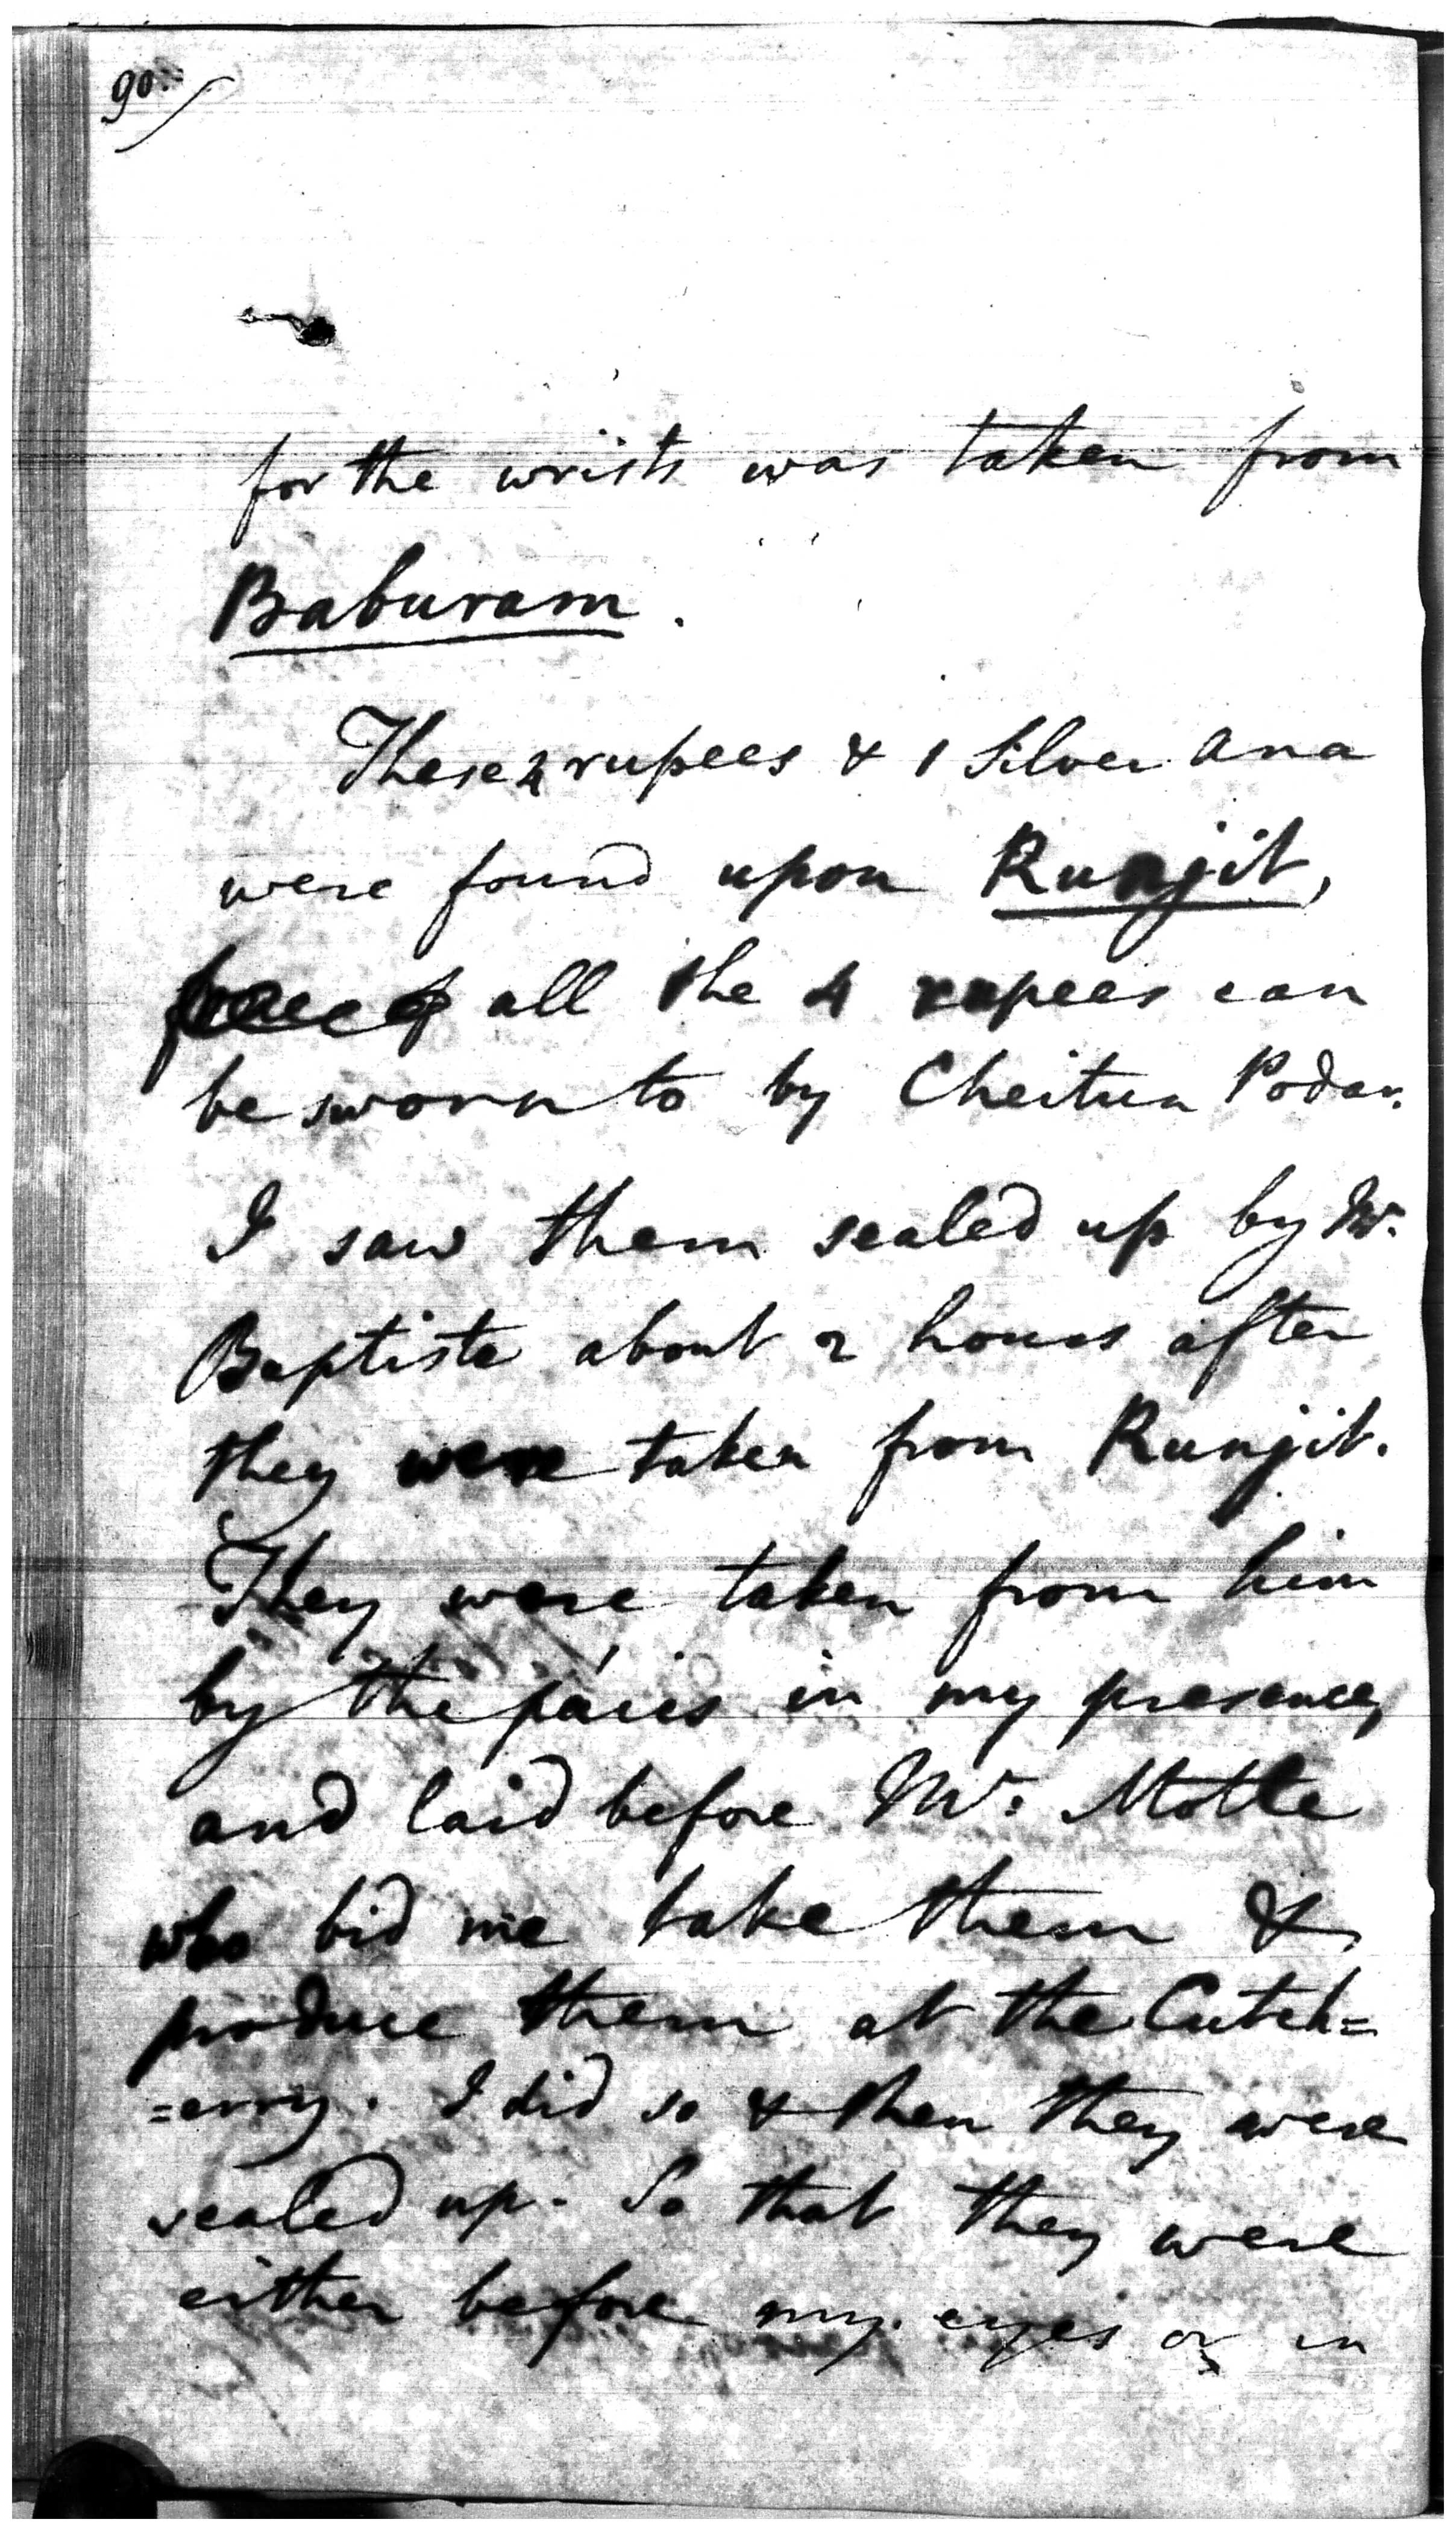 90.
for the wrists was taken from
Baburam.
These 4 rupees & 1 Silver Ana
were found upon Runjit,
all the 4 rupees can
be sworn to by Cheitun Podar.
I saw them sealed up by Mr.
Baptiste about 2 hours after
they were taken from Runjit.
They were taken from him
by the paies in my presence,
and laid before Mr. Motte
who bid me take them &
produce them at the Cutch=
=erry. I did so & then they were
sealed up. So that they were
either before my eyes or in